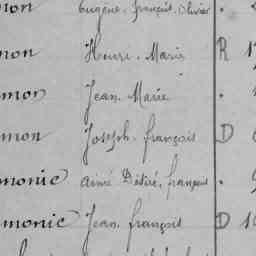 non Eugène. françois. Olivier.
non Henri. Marie R 1
mon Jean. Marie .
mon Joseph. françois D
monic aimé Désiré, françois .
monic Jean. françois D 1